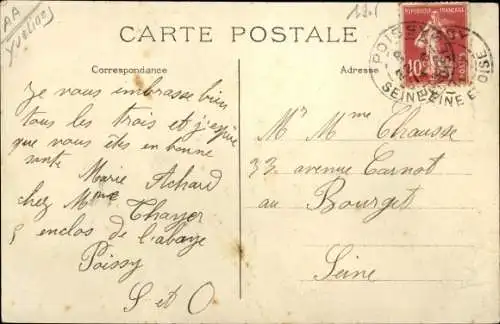 AA
Yvelines
CARTE POSTALE
Correspondance
Adresse
RÉPUBLIQUE FRANÇAISE
10c
POISSY
SEINE ET OISE
Je vous embrasse bien
tous les trois et j'espère
que vous êtes en bonne
sante
Marie Achard
chez Mme Thayer
5 enclos de l'abaye
Poissy
S et O
Mr Mme Chausse
33 avenue Carnot
au Bourget
Seine